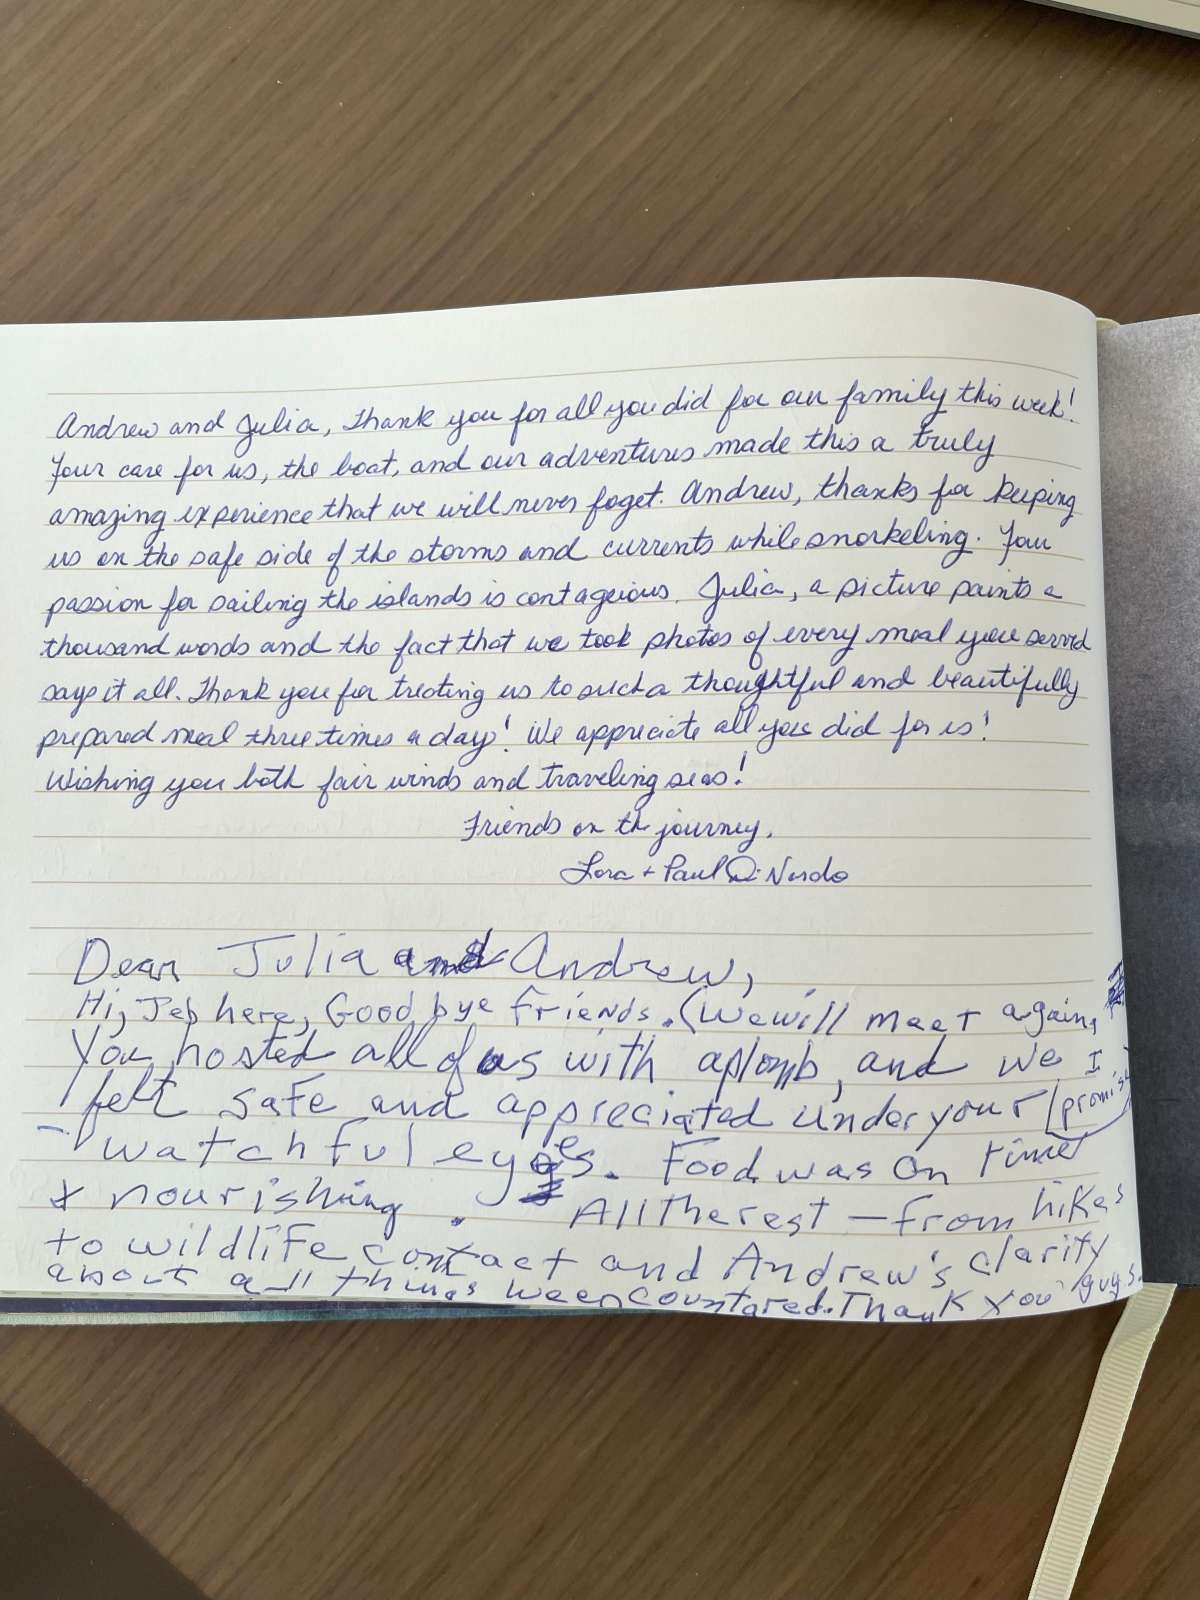 Andrew and Julia, Thank you for all you did for our family this week!
Your care for us, the boat, and our adventures made this a truly
amazing experience that we will never foget. Andrew, thanks for keeping
us on the safe side of the storms and currents while snorkeling. Your
passion for sailing the islands is contageious. Julia, a picture paints a
thousand words and the fact that we took photos of every meal you served
says it all. Thank you for treating us to such a thoughtful and beautifully
prepared meal three times a day! We appreciate all you did for us!
Wishing you both fair winds and traveling seas!
Friends on the journey,
Lora + Paul Di Nardo
Dear Julia and Andrew,
Hi, Jeb here, Good bye friends. (We will meet again,
You hosted all of us with aplomb, and we I
felt safe and appreciated under your promise
watchful eyes. Food was on time
& nourishing. All the rest – from hikes
to wildlife contact and Andrew's clarity
about all things we encountared. Thank you guys.